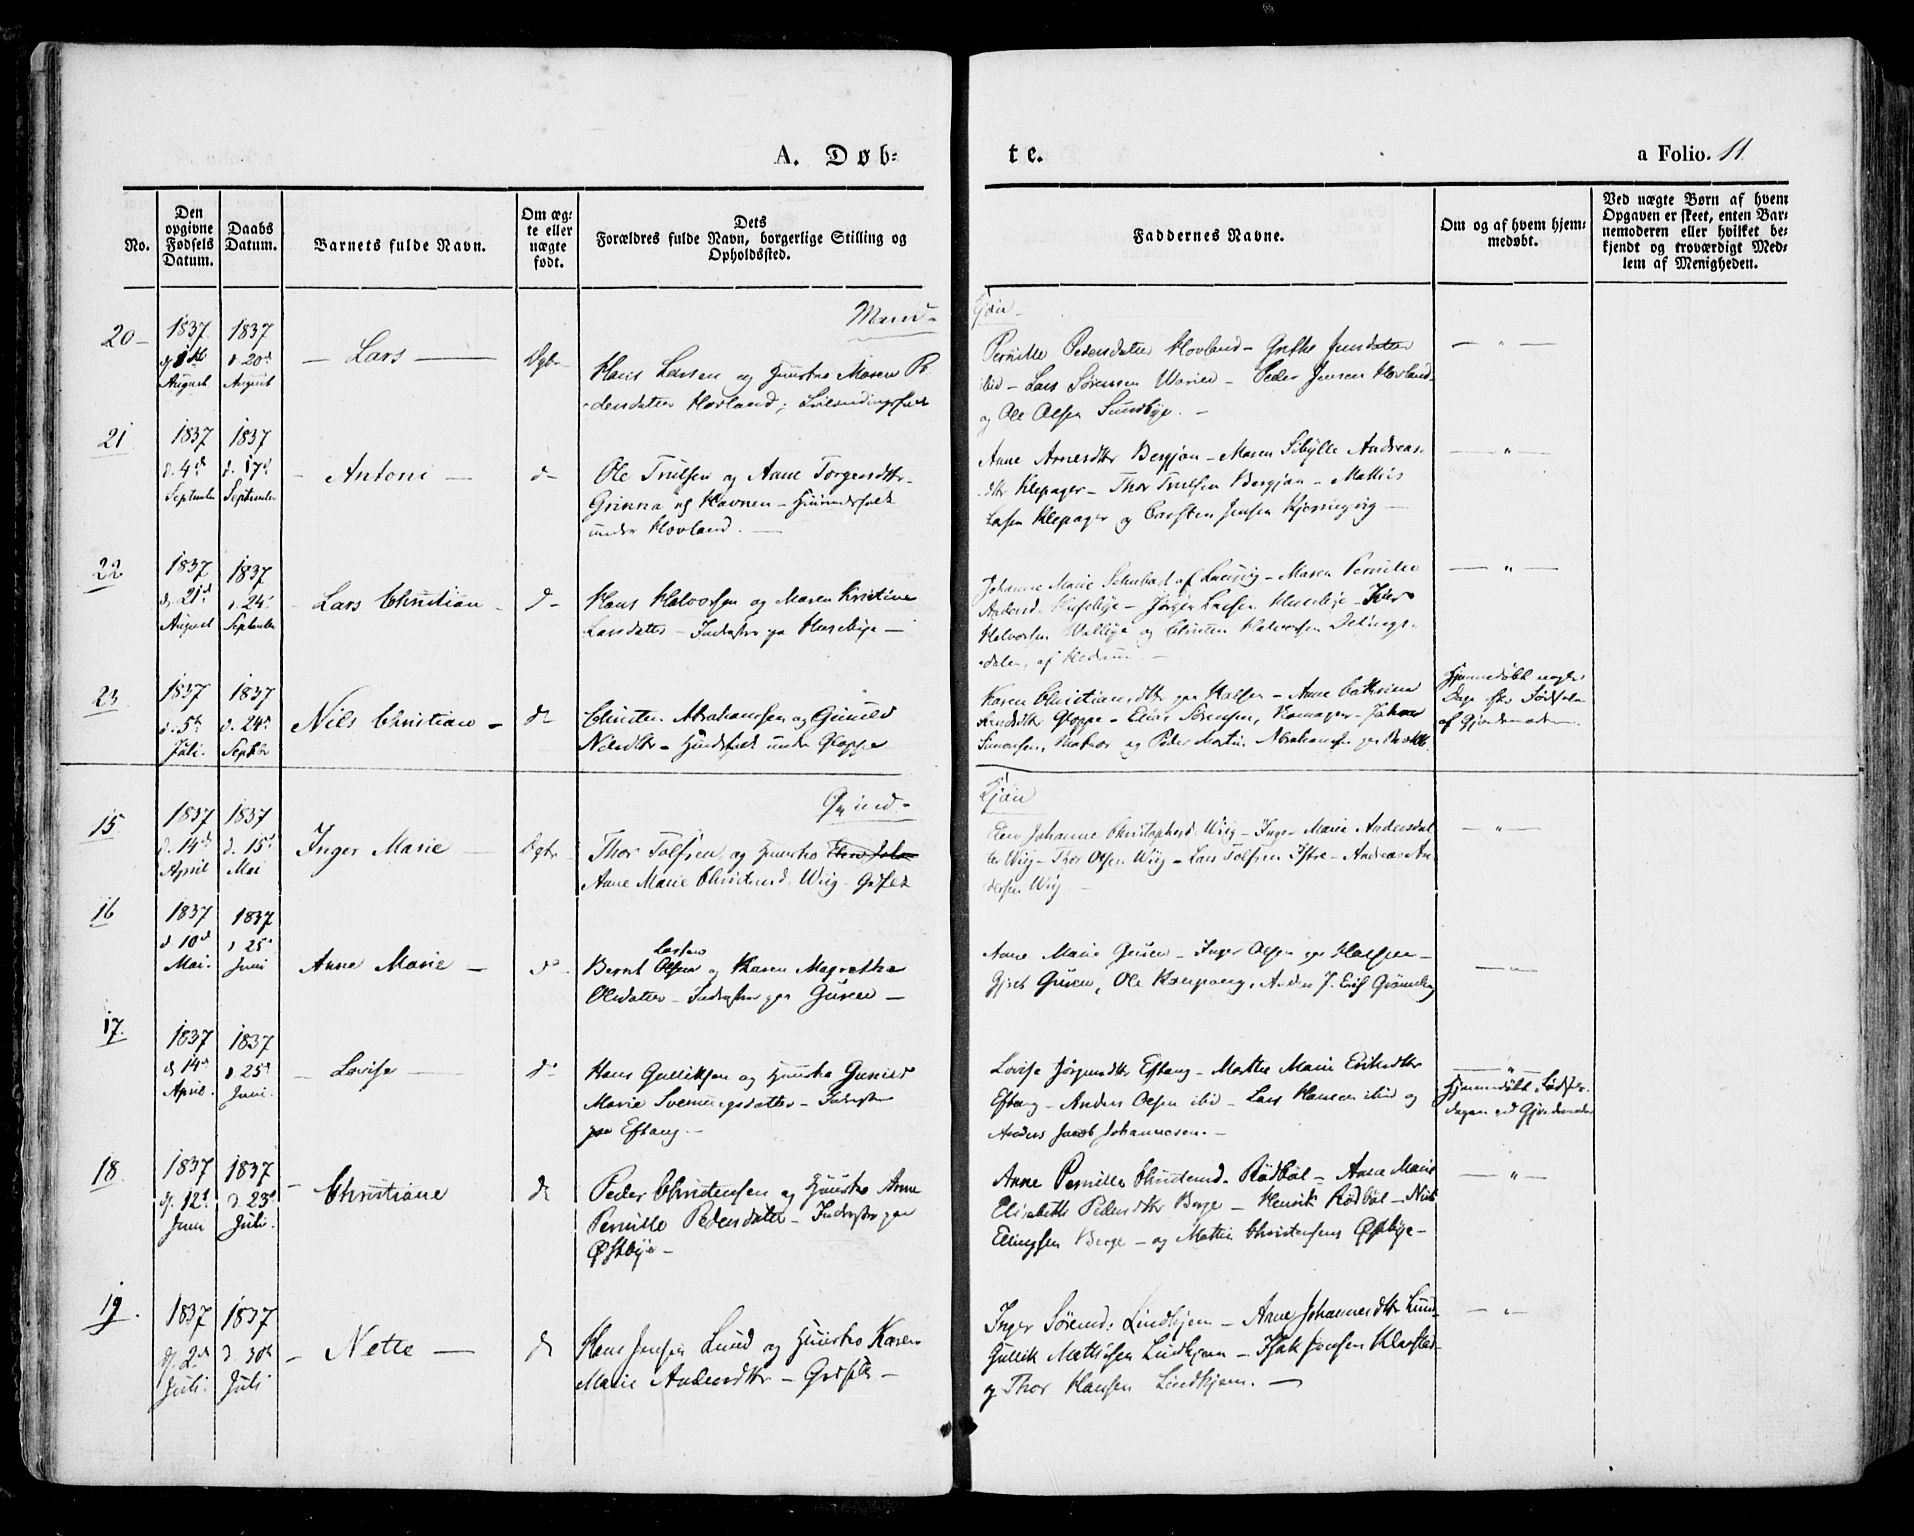 A. Døb=
te.
a Folio. 11
No.
Den opgivne Fødsels Datum.
Daabs Datum.
Barnets fulde Navn.
Om æg= te eller uægte født.
Dets
Forældres fulde Navn, borgerlige Stilling og
Opholdssted.
Faddernes Navne.
Om og af hvem hjem=
medøbt.
Ved uægte Børn af hvem
Opgaven er skeet, enten Bar=
nemoderen eller hvilket be=
kjendt og troværdigt Med=
lem af Menigheden.
Mand-
Kjøn
20- 1837 August 1837 d. 20d August
- Lars -
Hans Larsen og Hustru Maren Pe
-dersdatter Hovland;
Pernille Pedersdatter Hovland - Grethe Jensdatter
ibid - Lars Sørensen - Peder Jensen Hovland
og Ole Olsen Sundbye. -
- " -
21 1837 d. 4d September 1837 d. 17d September
- Antoni -
d-
Ole Trulsen og Anne Torgersdtr
Grinna og Havnen -
under Hovland. -
Anne Arnesdtr Bergjan - Maren Sibylle Andreas-
dtr Klepager - Thor Trulsen Bergjan - Mathis
Larsen Klepager og Carsten Jensen Kjerringvig -
- " -
22 1837 d. 21d August 1837 d. 24d September
- Lars Christian -
d-
Hans Halvorsen og Maren Kristine
Larsdatter - Inderster paa Husebye -
Johanne Marie Schubart af Laurvig - Maren Pernille
Andersd. Husebye - Jørgen Larsen Husebye -
Halvorsen Valbye og Christen Halvorsen
-dalen, af Hedrum. -
- " -
23 1837 d. 5te Juli. 1837 d. 24d Septbr
Nils Christian -
Christen Abrahamsen og Gunild
Nilsdtr - under Gloppe
Karen Christiansdtr paa Halsen - Anne Cathrine
Gloppe - Sørensen, -
Simonsen, og Peder Martin Abrahamsen paa
Hjemmedøbt nogle
Dage efter Fødselen
af Gjordemoderen.
Qvind-
Kjøn
15 1837 d. 14d April 1837 d. 15d Mai
Inger Marie -
Thor Tolfsen og Hustru
Anne Marie Christensd. Wiig -
Johanne Christophersd. Wiig - Inger Marie Andersdat
ter Wiig - Thor Olsen Wiig - Lars Tolfsen Istre - Andreas An
dersen Wiig -
- " -
16 1837 d 10d Mai. 1837 d 25d Juni
Anne Marie -
Larsen
Bernt Olsen og Karen Magrethe
Olsdatter - Inderster paa Guren -
Anne Marie Guren - Inger Olsen paa Halsen -
Guren, Ole Kaupang, Anders J.
- " -
17. 1837 d 14d April. 1837 d 25d Juni.
- Lovise -
Hans Gulliksen og Hustru Gunild
Marie Svenningsdatter - Inderster
paa Eftang -
Lovise Jørgensdtr Eftang - Marthe Marie Eriksdtr
Eftang - Anders Olsen ibid - Lars Hansen ibid og
Anders Jacob Johannesen. -
- " -
Hjemmedøbt Fødsels-
dagen ved Gjordemoder
18 1837 d. 12d Juni 1837 d. 23d Juli.
- Christiane
Peder Christensen og Hustru Anne
Pernille Pedersdatter - Inderster paa
Østbye -
Anne Pernille Christensd. Rødbøl - Anne Marie
Elisabeth Pedersdtr Berge - Henrik Rødbøl - Niels
Ellingsen Berge - og Mathis Christensens Østbye -
- " -
19. 1837 d. 2d Juli. 1837 d. 30te Juli
- Nette -
Hans Jensen Lund og Hustru Karen
Marie Andersdtr -
Inger Sørensd. Lindhjem - Anne Johannesdtr Lund-
Gullik Mathisen Lindhjem - Isak Jensen Klavstad -
og Thor Hansen Lindhjem. -
- " -